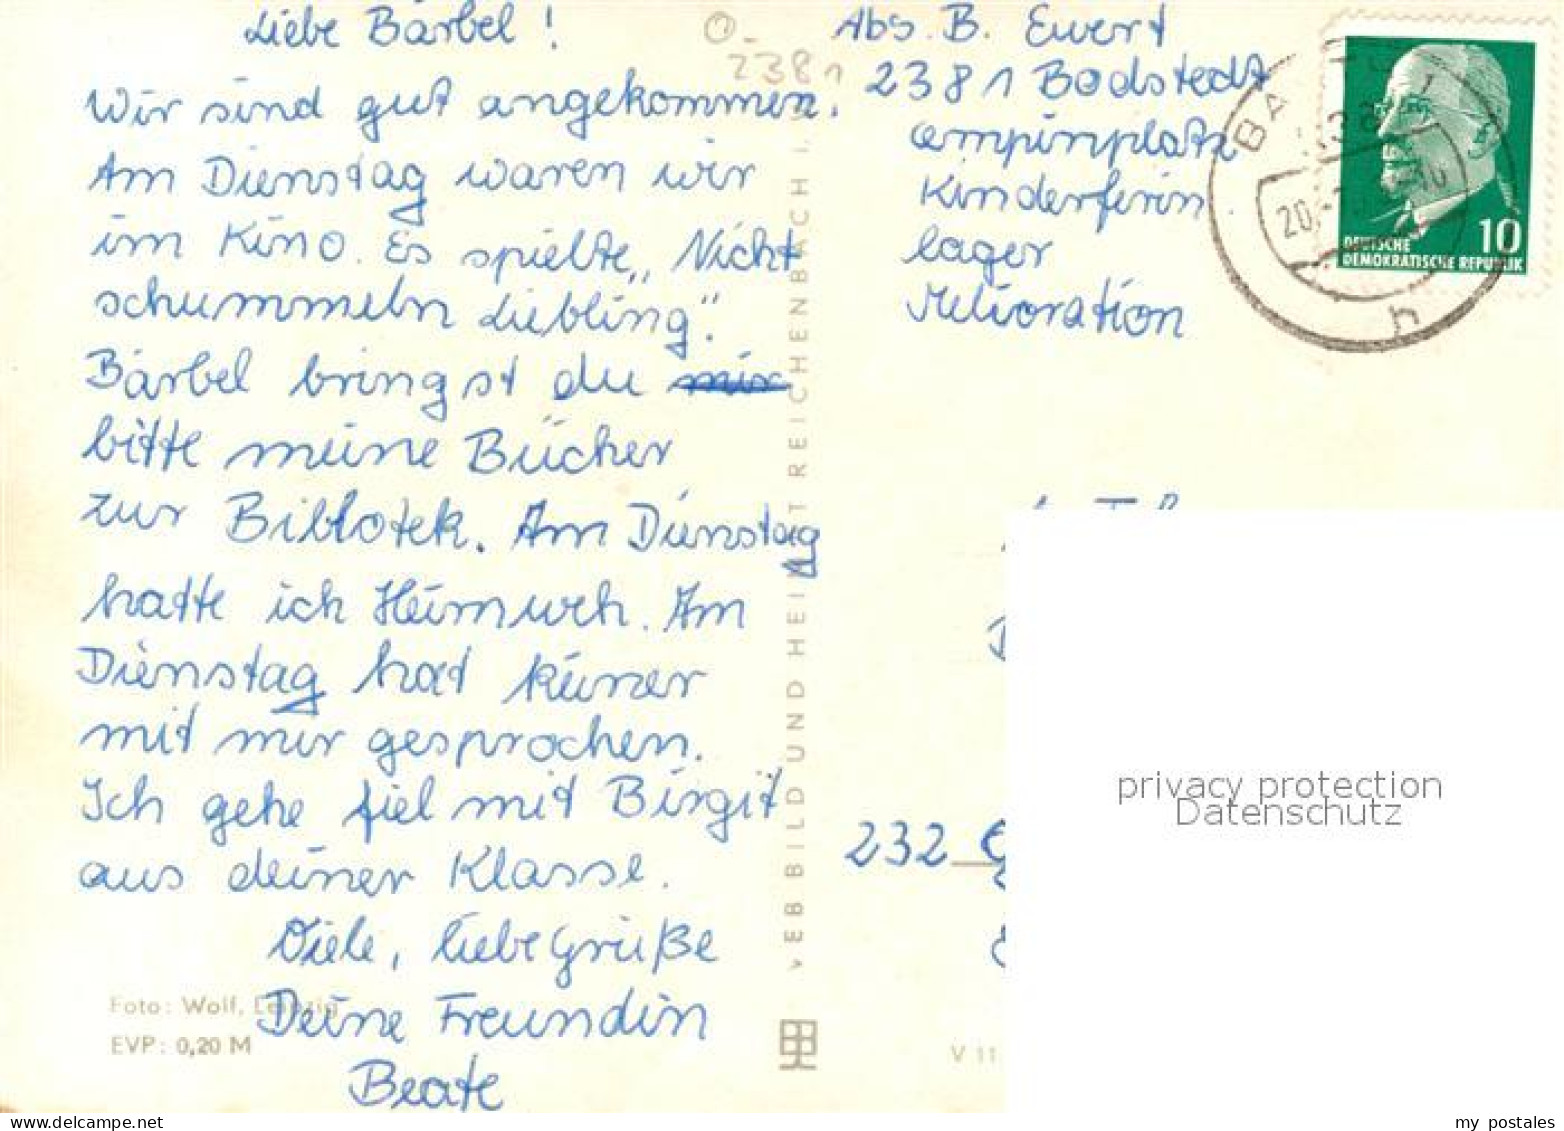 Liebe Bärbel!
Wir sind gut angekommen.
Am Dienstag waren wir
im Kino. Es spielte „Nicht
schummeln Liebling".
Bärbel bringst du mir
bitte meine Bücher
zur Biblotek. Am Dienstag
hatte ich Heimweh. Am
Dienstag hat keiner
mit mir gesprochen.
Ich gehe fiel mit Birgit
aus deiner Klasse.
Viele, liebe Grüße
Deine Freundin
Beate
Foto: Wolf, Leipzig
EVP: 0,20 M
VEB BILD UND HEIMAT REICHENBACH I.
V 11
2381
Abs. B. Ewert
2381 Bodstedt
ampinplatz
Kinderferin
lager
Melioration
232
BA
20.
h
10
DEUTSCHE
DEMOKRATISCHE REPUBLIK
privacy protection
Datenschutz
my postales